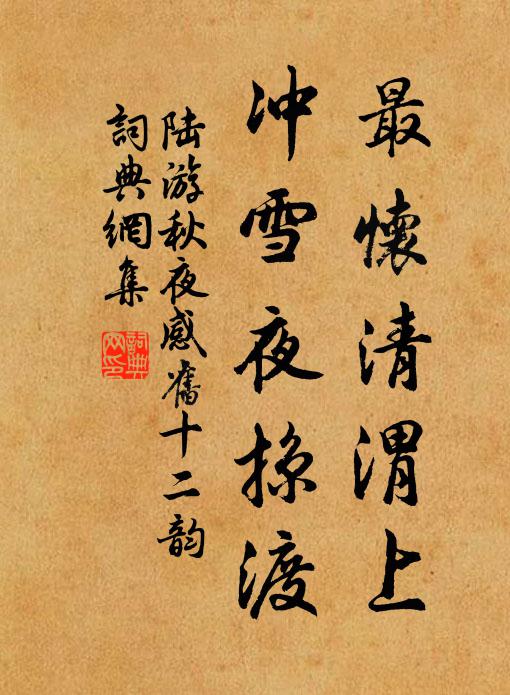 最懷清渭上
冲雪夜掠渡
陆游秋夜感舊十二韵
詞典網集
詞典网印